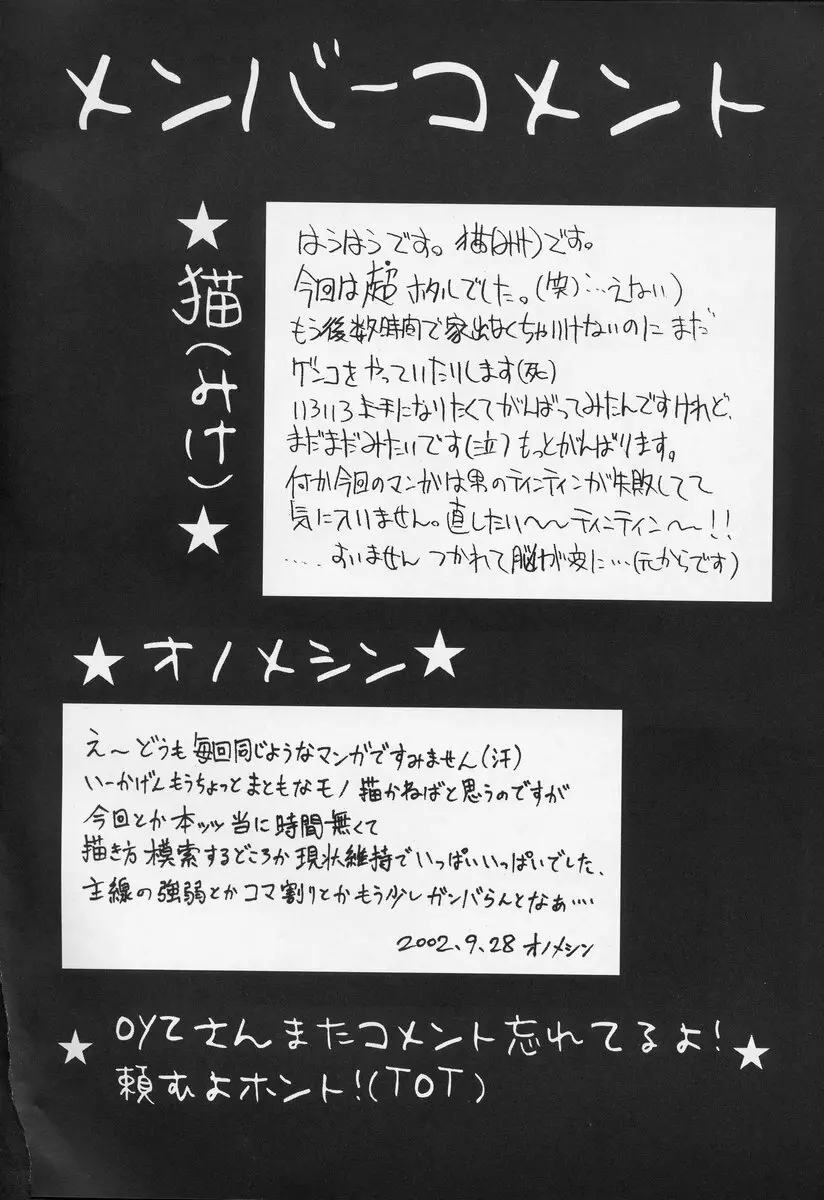 メンバーコメント
★猫(みけ)★
はうはうです。猫(みけ)です。
今回は超ホタルでした。(笑)…えない)
もう後数時間で家出なくちゃいけないのにまだ
ゲンコをやっていたりします(死)
いろいろ上手になりたくてがんばってみたんですけれど、
まだまだみたいです(泣)もっとがんばります。
何か今回のマンガは男のティンティンが失敗してて
気に入いません。直したい〜〜ティンティン〜!!
....すいません つかれて脳が変に…(元からです)
★オノメシン★
え〜どうも毎回同じようなマンガですみません(汗)
いーかげんもうちょっとまともなモノ描かねばと思うのですが
今回とか本ッッ当に時間無くて
描き方模索するどころか現状維持でいっぱいいっぱいでした、
主線の強弱とかコマ割りとかもう少しガンバらんとなぁ....
2002.9.28 オノメシン
★ さんまたコメント忘れてるよ!★
頼むよホント!(TOT)